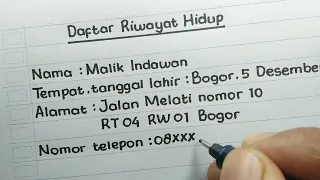 Daftar Riwayat Hidup
Nama : Malik Indawan
Tempat, tanggal lahir : Bogor, 5 Desember
Alamat : Jalan Melati nomor 10
RT 04 RW 01 Bogor
Nomor telepon : 08xxx